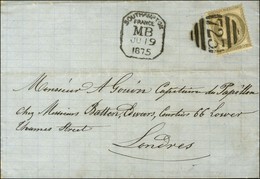 SOUTHAMPTON
FRANCE
MB
JU 19
1875
723
Monsieur A Gouin Capitaine du Papillon
Chez Messieurs Batten, Evans, Courtiers 66 Lower
Thames Street
Londres